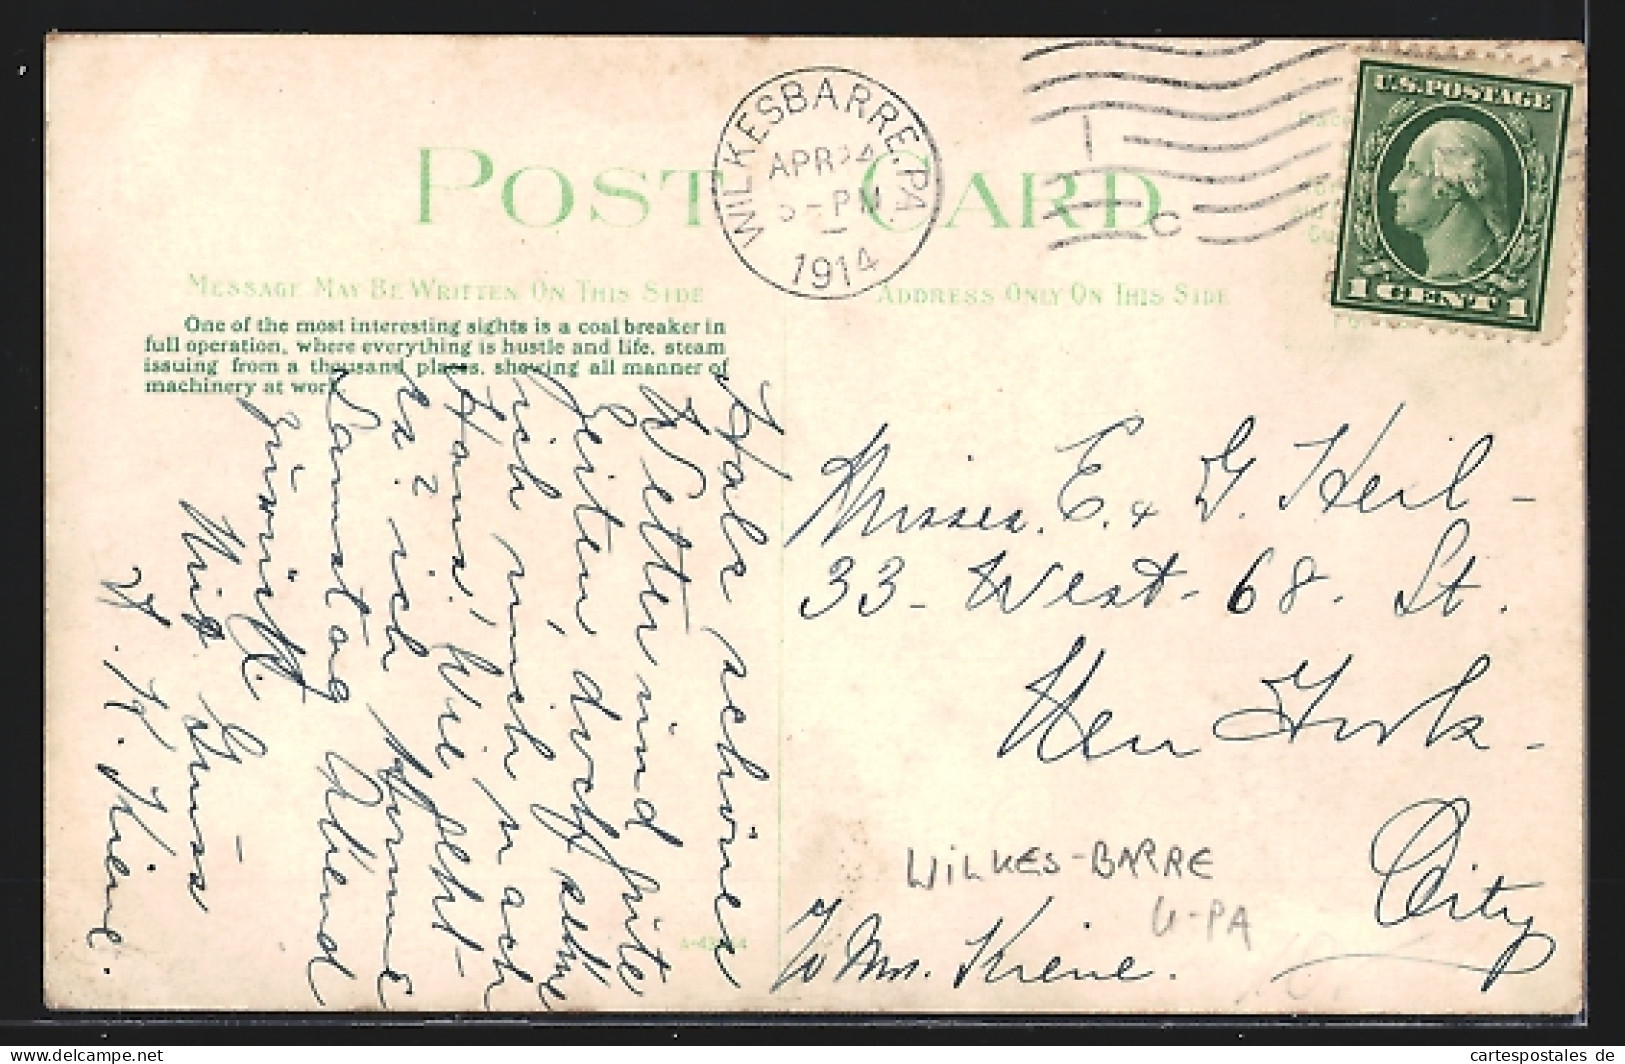 POST CARD
WILKESBARRE, PA.
APR 24
5-PM
1914
C
U.S. POSTAGE
1 CENT 1
MESSAGE MAY BE WRITTEN ON THIS SIDE
ADDRESS ONLY ON THIS SIDE
One of the most interesting sights is a coal breaker in
full operation, where everything is hustle and life, steam
issuing from a thousand places, showing all manner of
machinery at work.
Habe schönes
Wetter und gute
Zeiten, doch sehne
ich mich nach
Haus! Wie geht
es? ich komme
Samstag Abend
zurück.
Mit Gruss
H. H. Kiene.
Misses. E. & G. Heil -
33 - West - 68. St.
New York -
City
℅ Mrs. Kiene.
WILKES-BARRE
U-PA
cartespostales de